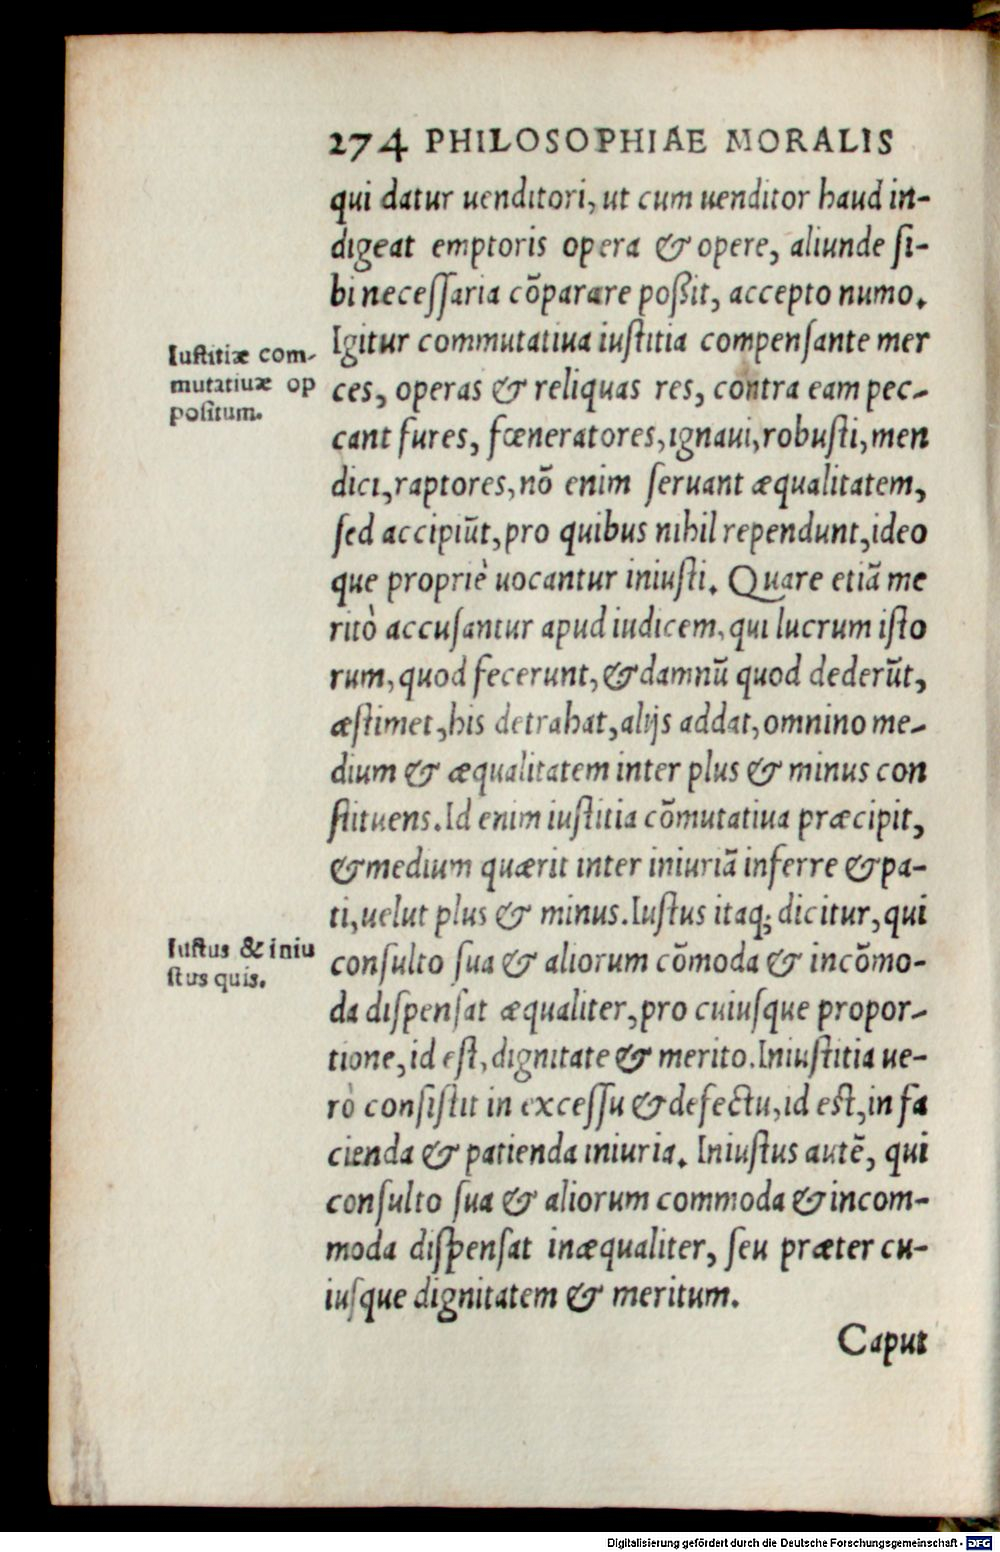 274 PHILOSOPHIAE MORALIS
qui datur uenditori, ut cum uenditor haud in-
digeat emptoris opera & opere, aliunde si-
bi necessaria cōparare poßit, accepto numo.
Igitur commutatiua iustitia compensante mer
Iustitiæ com-
mutatiuæ op
positum.
ces, operas & reliquas res, contra eam pec-
cant fures, fœneratores, ignaui, robusti, men
dici, raptores, nō enim seruant æqualitatem,
sed accipiūt, pro quibus nihil rependunt, ideo
que propriè uocantur iniusti. Quare etiā me
ritò accusantur apud iudicem, qui lucrum isto
rum, quod fecerunt, & damnū quod dederūt,
æstimet, his detrahat, alijs addat, omnino me-
dium & æqualitatem inter plus & minus con
stituens. Id enim iustitia cōmutatiua præcipit,
& medium quærit inter iniuriā inferre & pa-
ti, uelut plus & minus. Iustus itaq; dicitur, qui
Iustus & iniu
stus quis.
consulto sua & aliorum cōmoda & incōmo-
da dispensat æqualiter, pro cuiusque propor-
tione, id est, dignitate & merito. Iniustitia ue-
rò consistit in excessu & defectu, id est, in fa
cienda & patienda iniuria. Iniustus autē, qui
consulto sua & aliorum commoda & incom-
moda dispensat inæqualiter, seu præter cu-
iusque dignitatem & meritum.
Caput
Digitalisierung gefördert durch die Deutsche Forschungsgemeinschaft - DFG